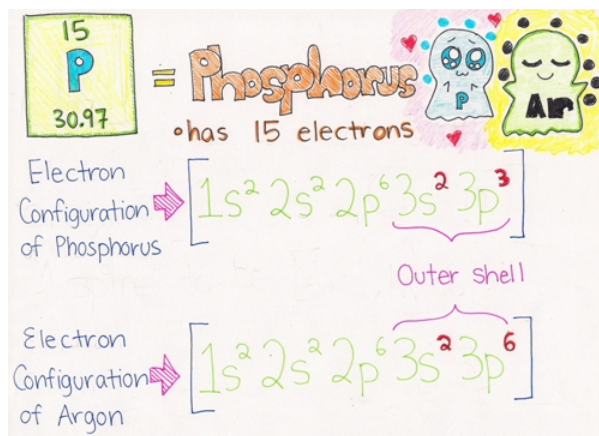 15
P
30.97
= Phosphorus
•has 15 electrons
P
Ar
Electron
Configuration
of Phosphorus
[1s² 2s² 2p⁶ 3s² 3p³]
Outer shell
Electron
Configuration
of Argon
[1s² 2s² 2p⁶ 3s² 3p⁶]